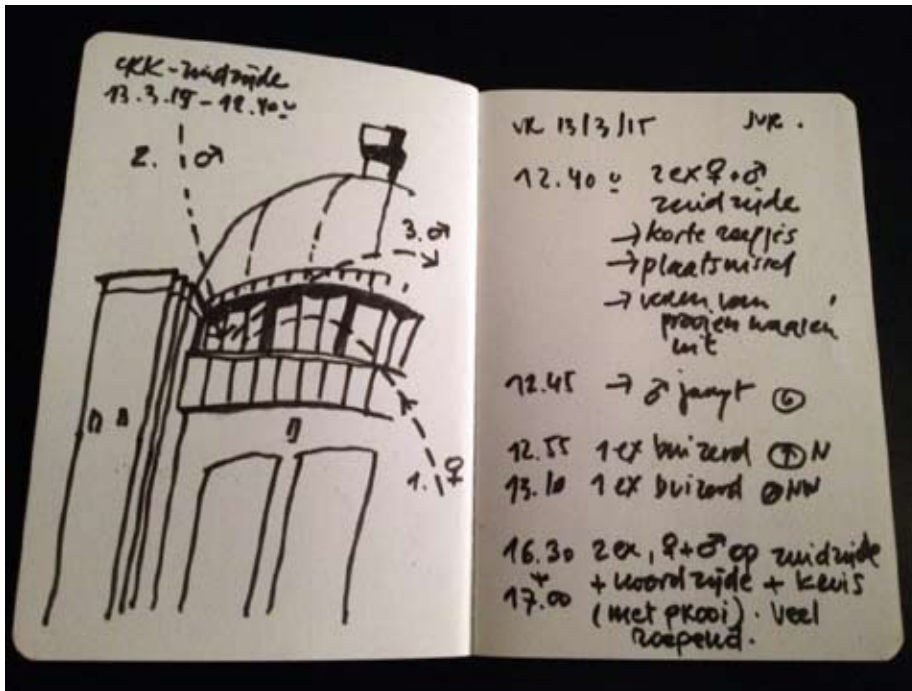 KKK-zuidzijde
13.3.15 - 12.40u
2. ♂
3. ♂
1. ♀
VR 13/3/15 JVR.
12.40u 2 ex ♀+♂
zuidzijde
→ korte
→ plaatswissel
→ veren van
prooien waaien
uit
12.45 → ♂ jaagt
12.55 1 ex buizerd ↑ N
13.10 1 ex buizerd NW
16.30 2 ex, ♀+♂ op zuidzijde
17.00 + noordzijde + kruis
(met prooi). Veel
roepend.